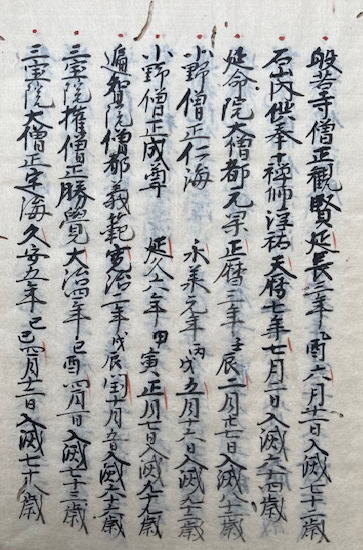 般若寺僧正觀賢 延長三年乙酉六月十一日入滅七十二歳
石山内供奉十禅師淳祐 天暦七年七月二日入滅六十四歳
延命院大僧都元杲 正暦三年壬辰二月廿七日入滅八十二歳
小野僧正仁海 永承元年丙戌五月十六日入滅九十二歳
小野僧正成尊 延久六年甲寅正月七日入滅
遍智院僧都義範 寛治二年戊辰閏十月五日入滅六十六歳
三宝院権僧正勝覺 大治四年己酉四月一日入滅七十三歳
三宝院大僧正定海 久安五年己巳四月十二日入滅七十六歳